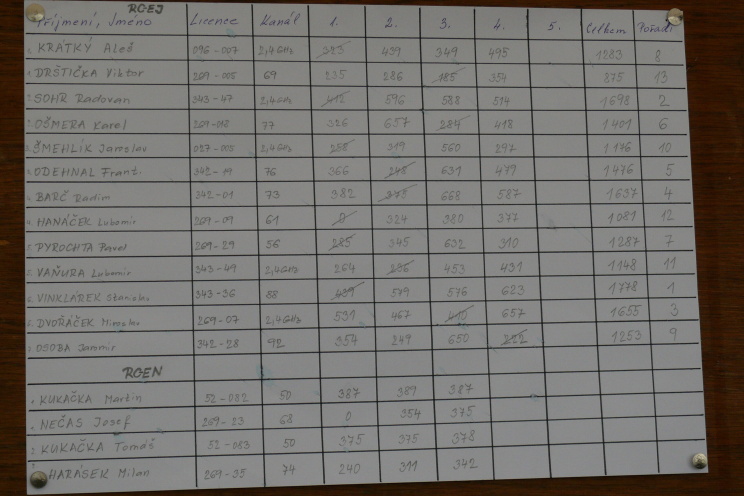 RCEJ
Příjmení, Jméno Licence Kanál 1. 2. 3. 4. 5. Celkem Pořadí
KRÁTKÝ Aleš 096-007 2,4GHz 323 439 349 495 1283 8
DRŠTIČKA Viktor 269-005 69 235 286 185 354 875 13
SOHR Radovan 343-47 2,4GHz 412 596 588 514 1698 2
OŠMERA Karel 269-018 77 326 657 284 418 1401 6
ŠMEHLÍK Jaroslav 027-005 2,4GHz 258 319 560 297 1176 10
ODEHNAL Frant. 342-19 76 366 248 631 479 1476 5
BARČ Radim 342-01 73 382 375 668 587 1637 4
HANÁČEK Lubomír 269-09 61 0 324 380 377 1081 12
PYROCHTA Pavel 269-29 56 285 345 632 310 1287 7
VAŇURA Lubomír 343-49 2,4GHz 264 236 453 431 1148 11
VINKLÁREK Stanislav 343-36 88 439 579 576 623 1778 1
DVOŘÁČEK Miroslav 269-07 2,4GHz 531 467 410 657 1655 3
OSOBA Jaromír 342-28 92 354 249 650 222 1253 9
RCEN
KUKAČKA Martin 52-082 50 387 389 387
NEČAS Josef 269-23 68 0 354 375
KUKAČKA Tomáš 52-083 50 375 375 378
HARÁSEK Milan 269-35 74 240 311 342